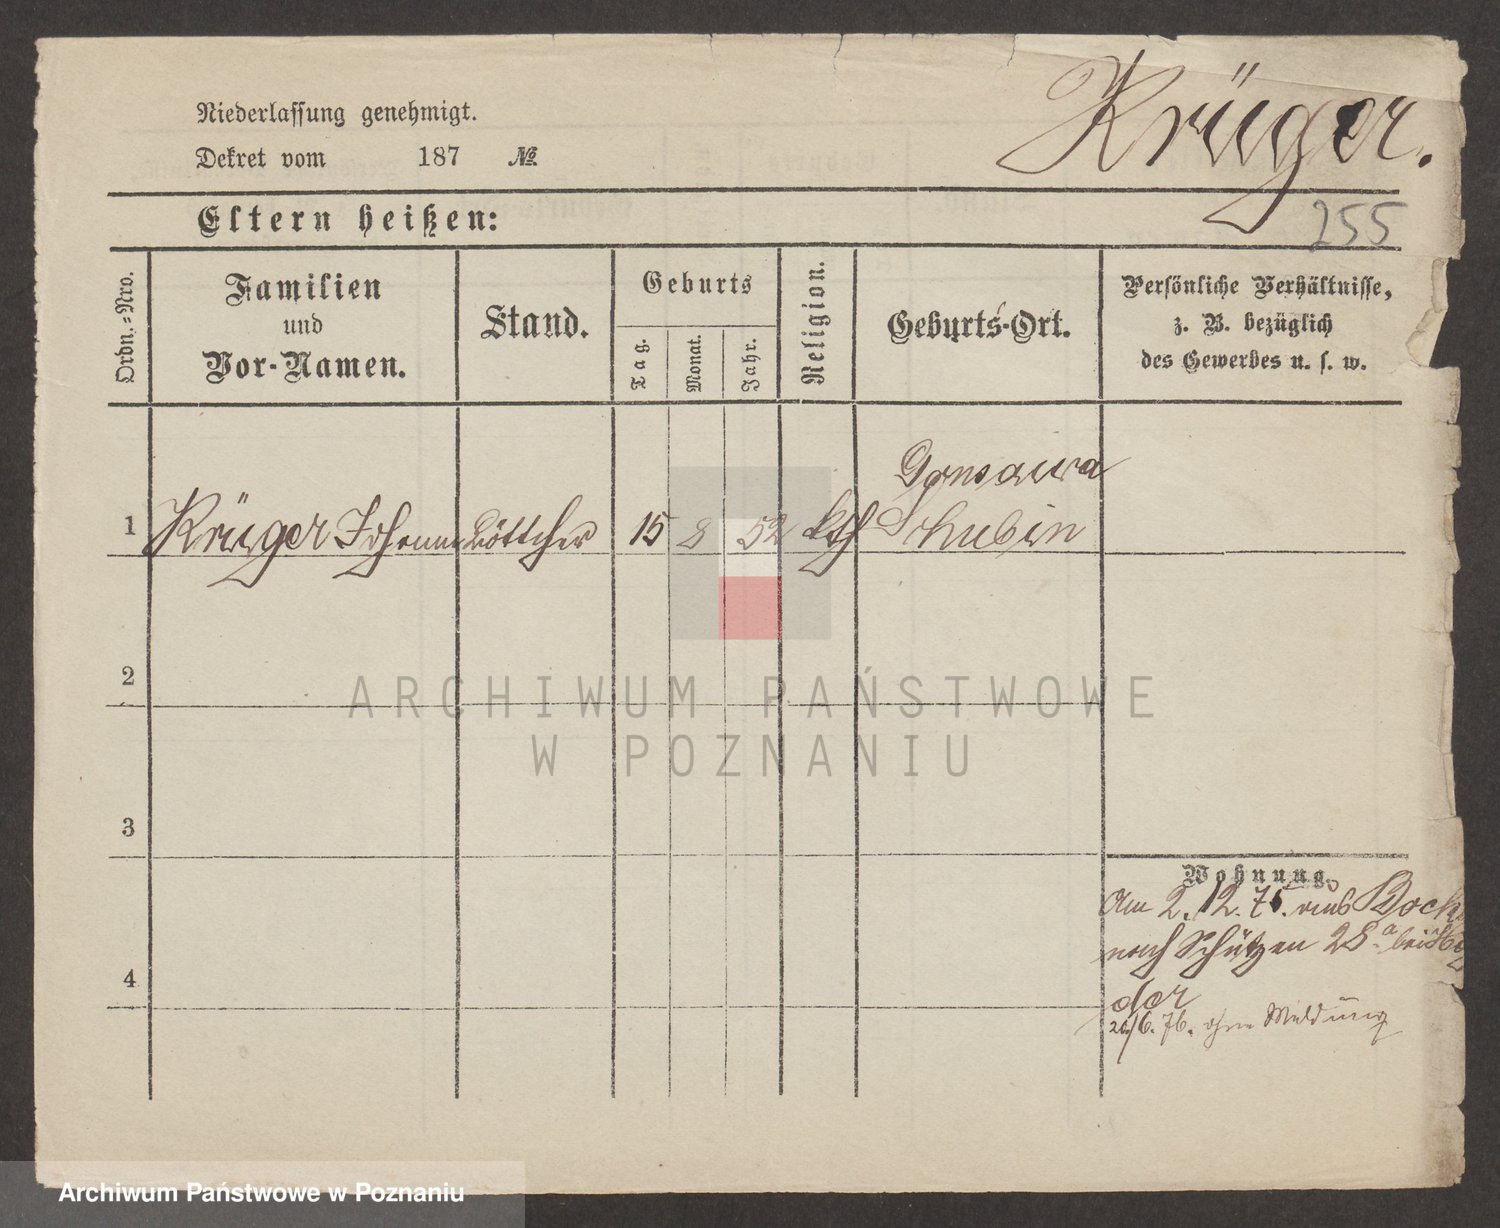 Krüger.
Niederlassung genehmigt.
Dekret vom 187 №
255
Eltern heißen:
Ordn.-Nro.
Familien
und
Vor-Namen.
Stand.
Geburts
Tag.
Monat.
Jahr.
Religion.
Geburts-Ort.
Persönliche Verhältnisse,
z. B. bezüglich
des Gewerbes u. s. w.
Gonsawa
1 Krüger Johann Böttcher 15 8 52 kth Schubin
2
ARCHIWUM PAŃSTWOWE
W POZNANIU
3
Wohnung.
Am 2. 12. 75. aus
nach Schützen 28.a bei
4
der
26/6. 76. ohne Meldung
Archiwum Państwowe w Poznaniu